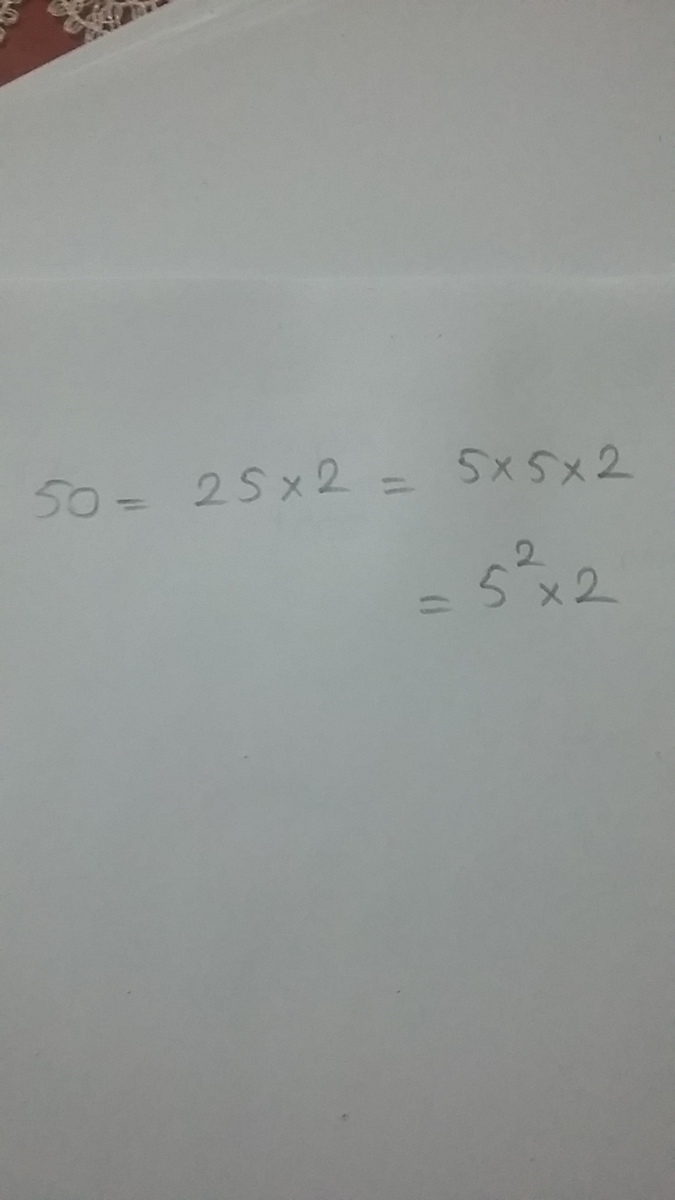 50 = 25 × 2 = 5 × 5 × 2
= 5² × 2